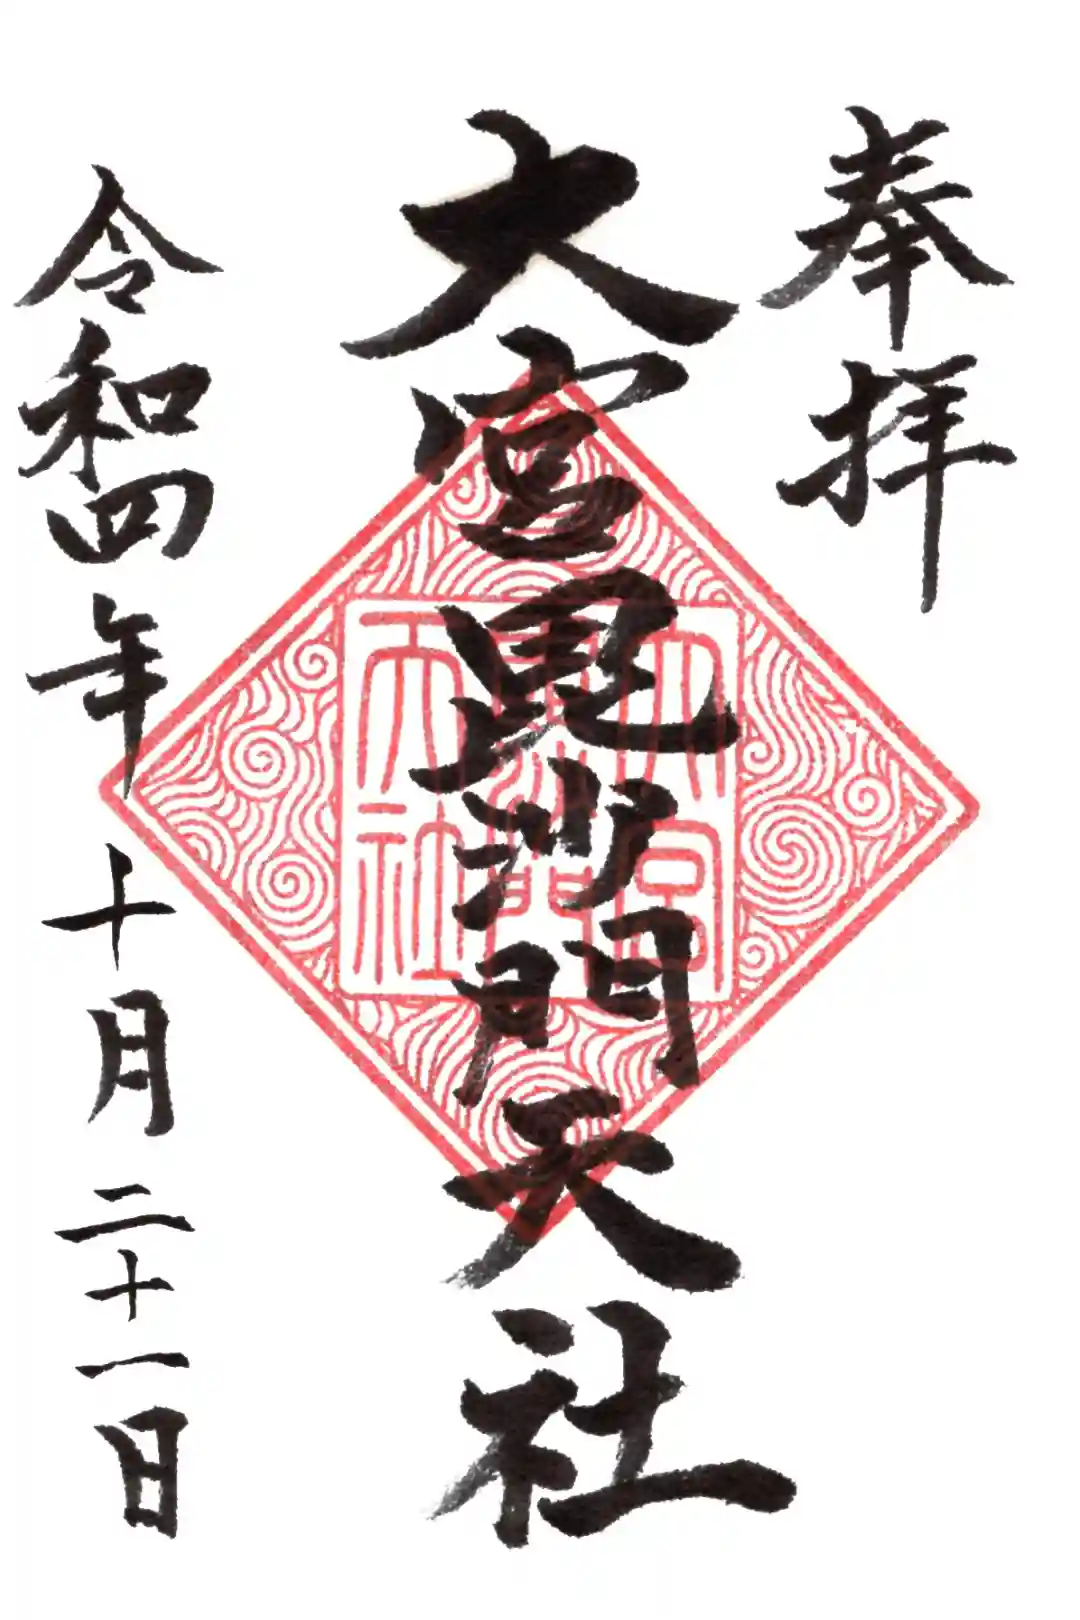 奉拝
大宮毘沙門天社
大宮
毘沙門
天社
令和四年十月二十一日